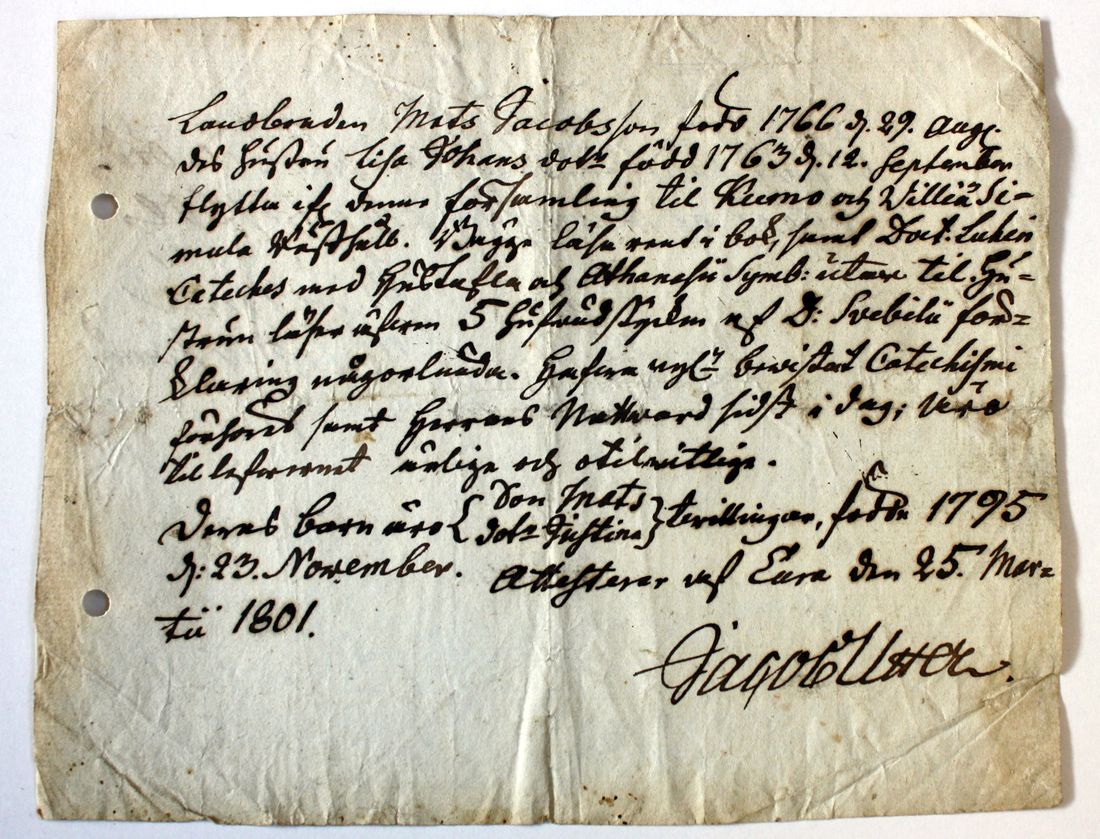 Landbonden Mats Jacobsson född 1766 d. 29. Aug.
des Hustru Lisa Johans dotr född 1763 d. 12. September
flytta ifr denne församling til Kumo och Villiä Si-
mula Rusthåll. Begge läsa rent i bok, samt Doct. Luheri
Cateches med Hustafla och Athanasii Symb: utan til. Hu-
strun läser äfven 5 Hufvudstycken af D: Svebilii för-
klaring någorlunda. Hafva bevistat Catechismi
förhöret samt Herrans Nattvard sidst i dag; äro
til lefvernet ärlige och otilvitlige.
Deras barn äro { Son Mats
dotr Justina } tvillingar, födde 1795
d: 23. November. Attesterar af Eura den 25. Mar-
tii 1801.
Jacob Utter.